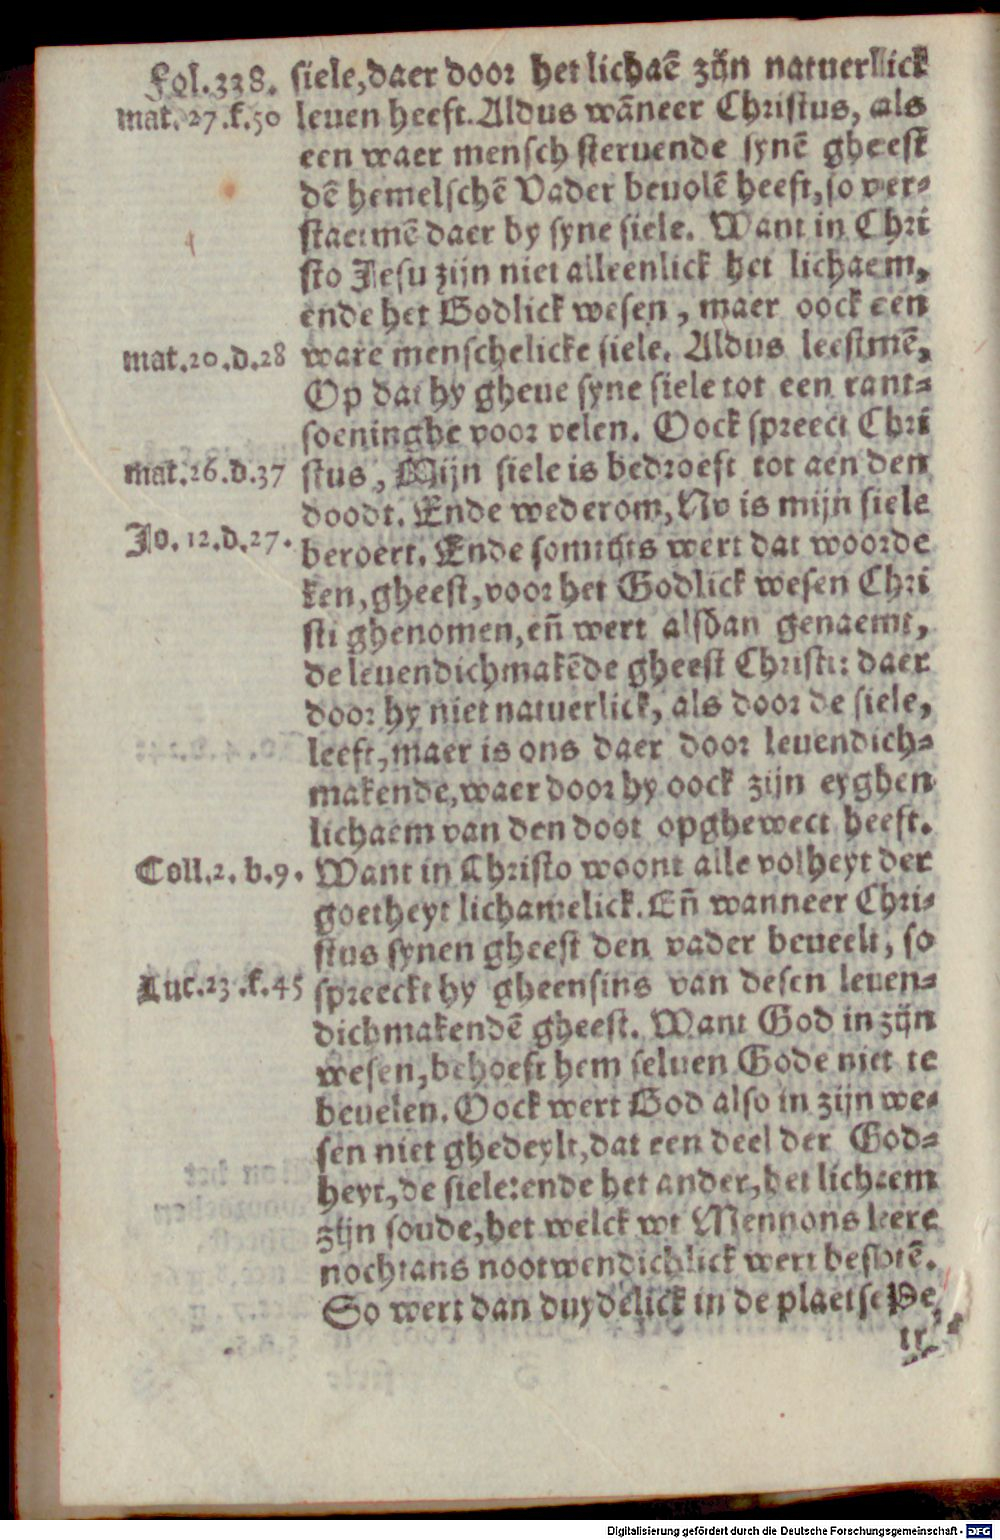 Fol.338. siele, daer door het lichaē zijn natuerlick
mat.27.f.50 leuen heeft. Aldus wāneer Christus, als
een waer mensch steruende synē gheest
dē hemelschē Vader beuolē heeft, so ver-
staetmē daer by syne siele. Want in Chri
sto Jesu zijn niet alleenlick het lichaem,
ende het Godlick wesen, maer oock een
mat.20.d.28 ware menschelicke siele. Aldus leestmē,
Op dat hy gheue syne siele tot een rant-
soeninghe voor velen. Oock spreect Chri
mat.26.d.37 stus, Mijn siele is bedroeft tot aen den
doodt. Ende wederom, Nv is mijn siele
Jo.12.d.27. beroert. Ende somtijts wert dat woorde
ken, gheest, voor het Godlick wesen Chri
sti ghenomen, eñ wert alsdan genaemt,
de leuendichmakēde gheest Christi: daer
door hy niet natuerlick, als door de siele,
leeft, maer is ons daer door leuendich-
makende, waer door hy oock zijn eyghen
lichaem van den doot opghewect heeft.
Coll.2.b.9. Want in Christo woont alle volheyt der
goetheyt lichamelick. Eñ wanneer Chri-
stus synen gheest den vader beueelt, so
Luc.23.f.45 spreeckt hy gheensins van desen leuen-
dichmakendē gheest. Want God in zijn
wesen, behoeft hem seluen Gode niet te
beuelen. Oock wert God also in zijn we-
sen niet ghedeylt, dat een deel der God-
heyt, de siele: ende het ander, het lichaem
zijn soude, het welck wt Mennons leere
nochtans nootwendichlick wert beslotē.
So wert dan duydelick in de plaetse Pe
Digitalisierung gefördert durch die Deutsche Forschungsgemeinschaft - DFG